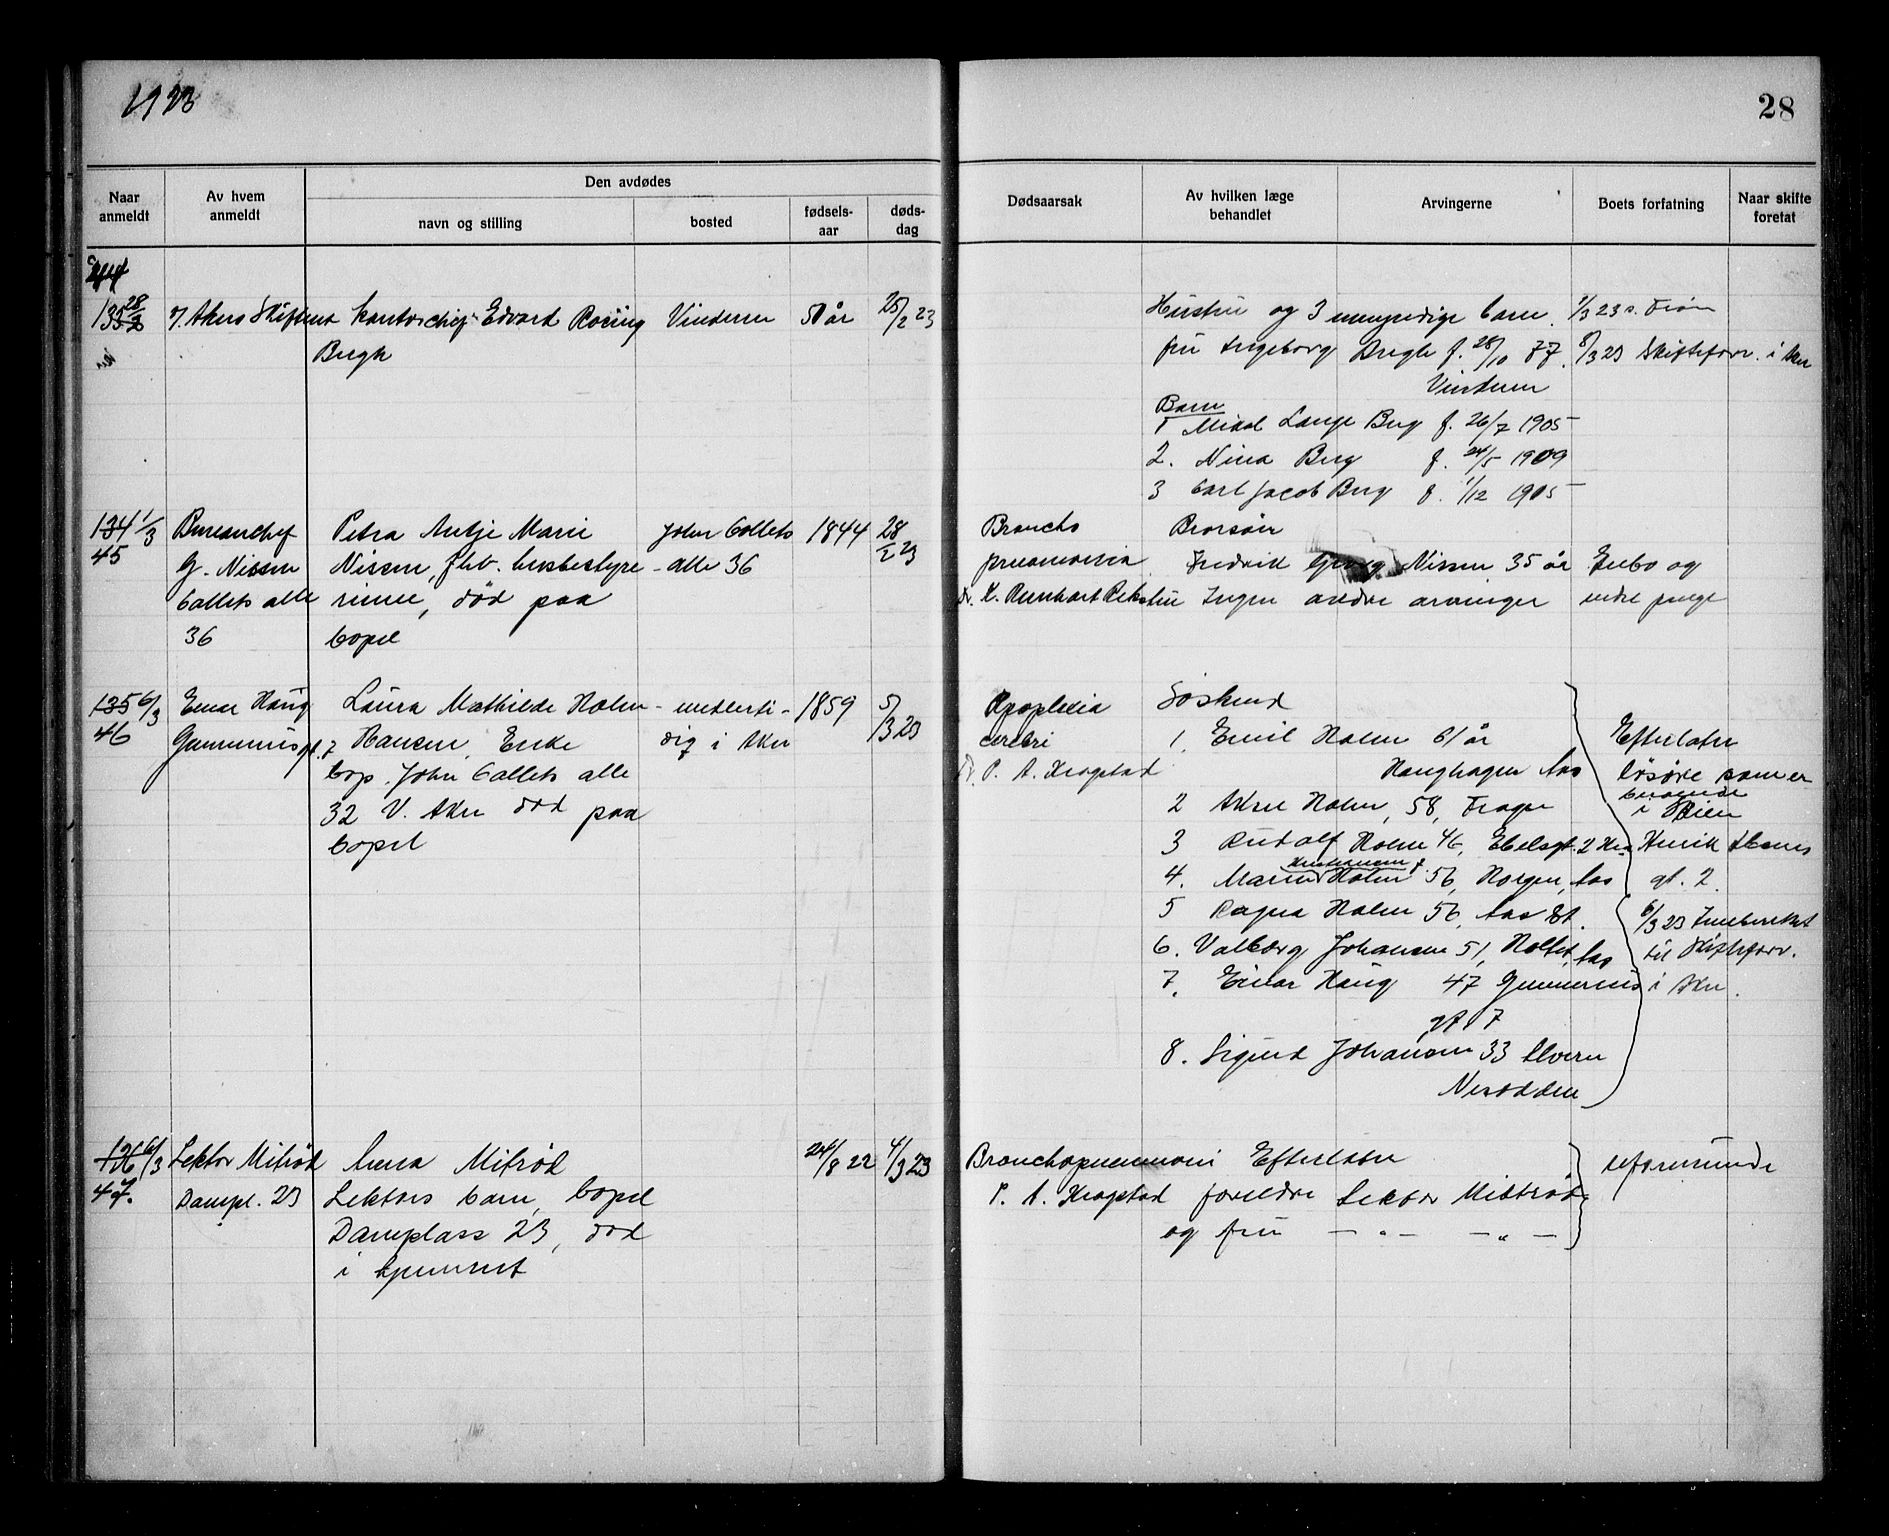 1923
28
Naar anmeldt
Av hvem anmeldt
Den avdødes
navn og stilling
bosted
fødsels-aar
døds-dag
Dødsaarsak
Av hvilken læge behandlet
Arvingerne
Boets forfatning
Naar skifte foretat
44
28/2 Kontorchef Edvard Vinderen 50 år 25/2 23
Bergh
Hustru og 3 umyndige barn. 1/3 23
fru Ingeborg Bergh f. 28/10 77. 8/3 23 Skifteforv. i Aker
Vinderen
Barn
1 Lange Berg f. 26/7 1905
2. Nina Berg f. 24/5 1909
3 Carl Jacob Berg f. 1/12 1905
134 1/3 Bureauchef Petra Antje Marie John Collets 1844 28/2 23
45 G. Nissen Nissen, fhv. husbestyre- alle 36
Collets alle rinne, død paa
36 bopel
Broncho Brorsøn
pneumonia Fredrik Nissen 35 år Enebo og
Dr. Ingen andre arvinger
135 6/3 Einar Haug Laura Mathilde Holm- midlerti- 1859 5/3 23
46 Gunnerusgt. 7 Hansen, Enke dig i Aker
bop. John Collets alle
32 V. Aker død paa
bopel
Apoplexia Søskend
cerebri 1. Emil Holm 61 år Efterlater
Dr. P. A. Krogstad Haughagen Aas løsøre som er
beroende
2 Aksel Holm, 58, i Skien
3 Rudolf Holm 46, 2 Henrik Ibsens
4. Marie Holm 56, Aas gt. 2.
5 Ragna Holm 56, Aas St. 6/3 23 Inberettet
6. Valborg Johansen 51, Holtet, Aas til Skifteforv.
7. Einar Haug 47 Gunnerus i Aker.
gt. 7
8. Sigurd Johansen 33
Nesodden
136 6/3 Lektor Mitrød Anna Mitrød 24/8 22 4/3 23
47. Dampl. 23 Lektors barn, bopel
Damplass 23, død
i hjemmet
Bronchopneumoni Efterlater uformuende
P. A. Krogstad foreldre Lektor Mittrød
og fru — „ — — „ —